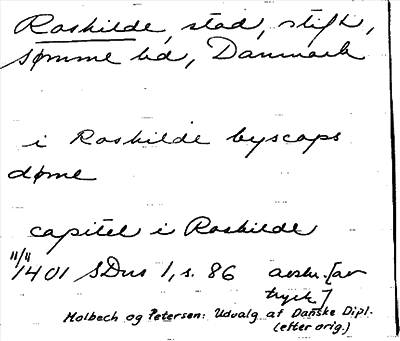 Roskilde, stad, stift,
Sømme hd, Danmark
i Roskilde byscops
døme
capitel i Roskilde
11/11 1401 SDns 1, s. 86 avskr. [av
tryck]
Molbech og Petersen: Udvalg af Danske Dipl.
(efter orig.)